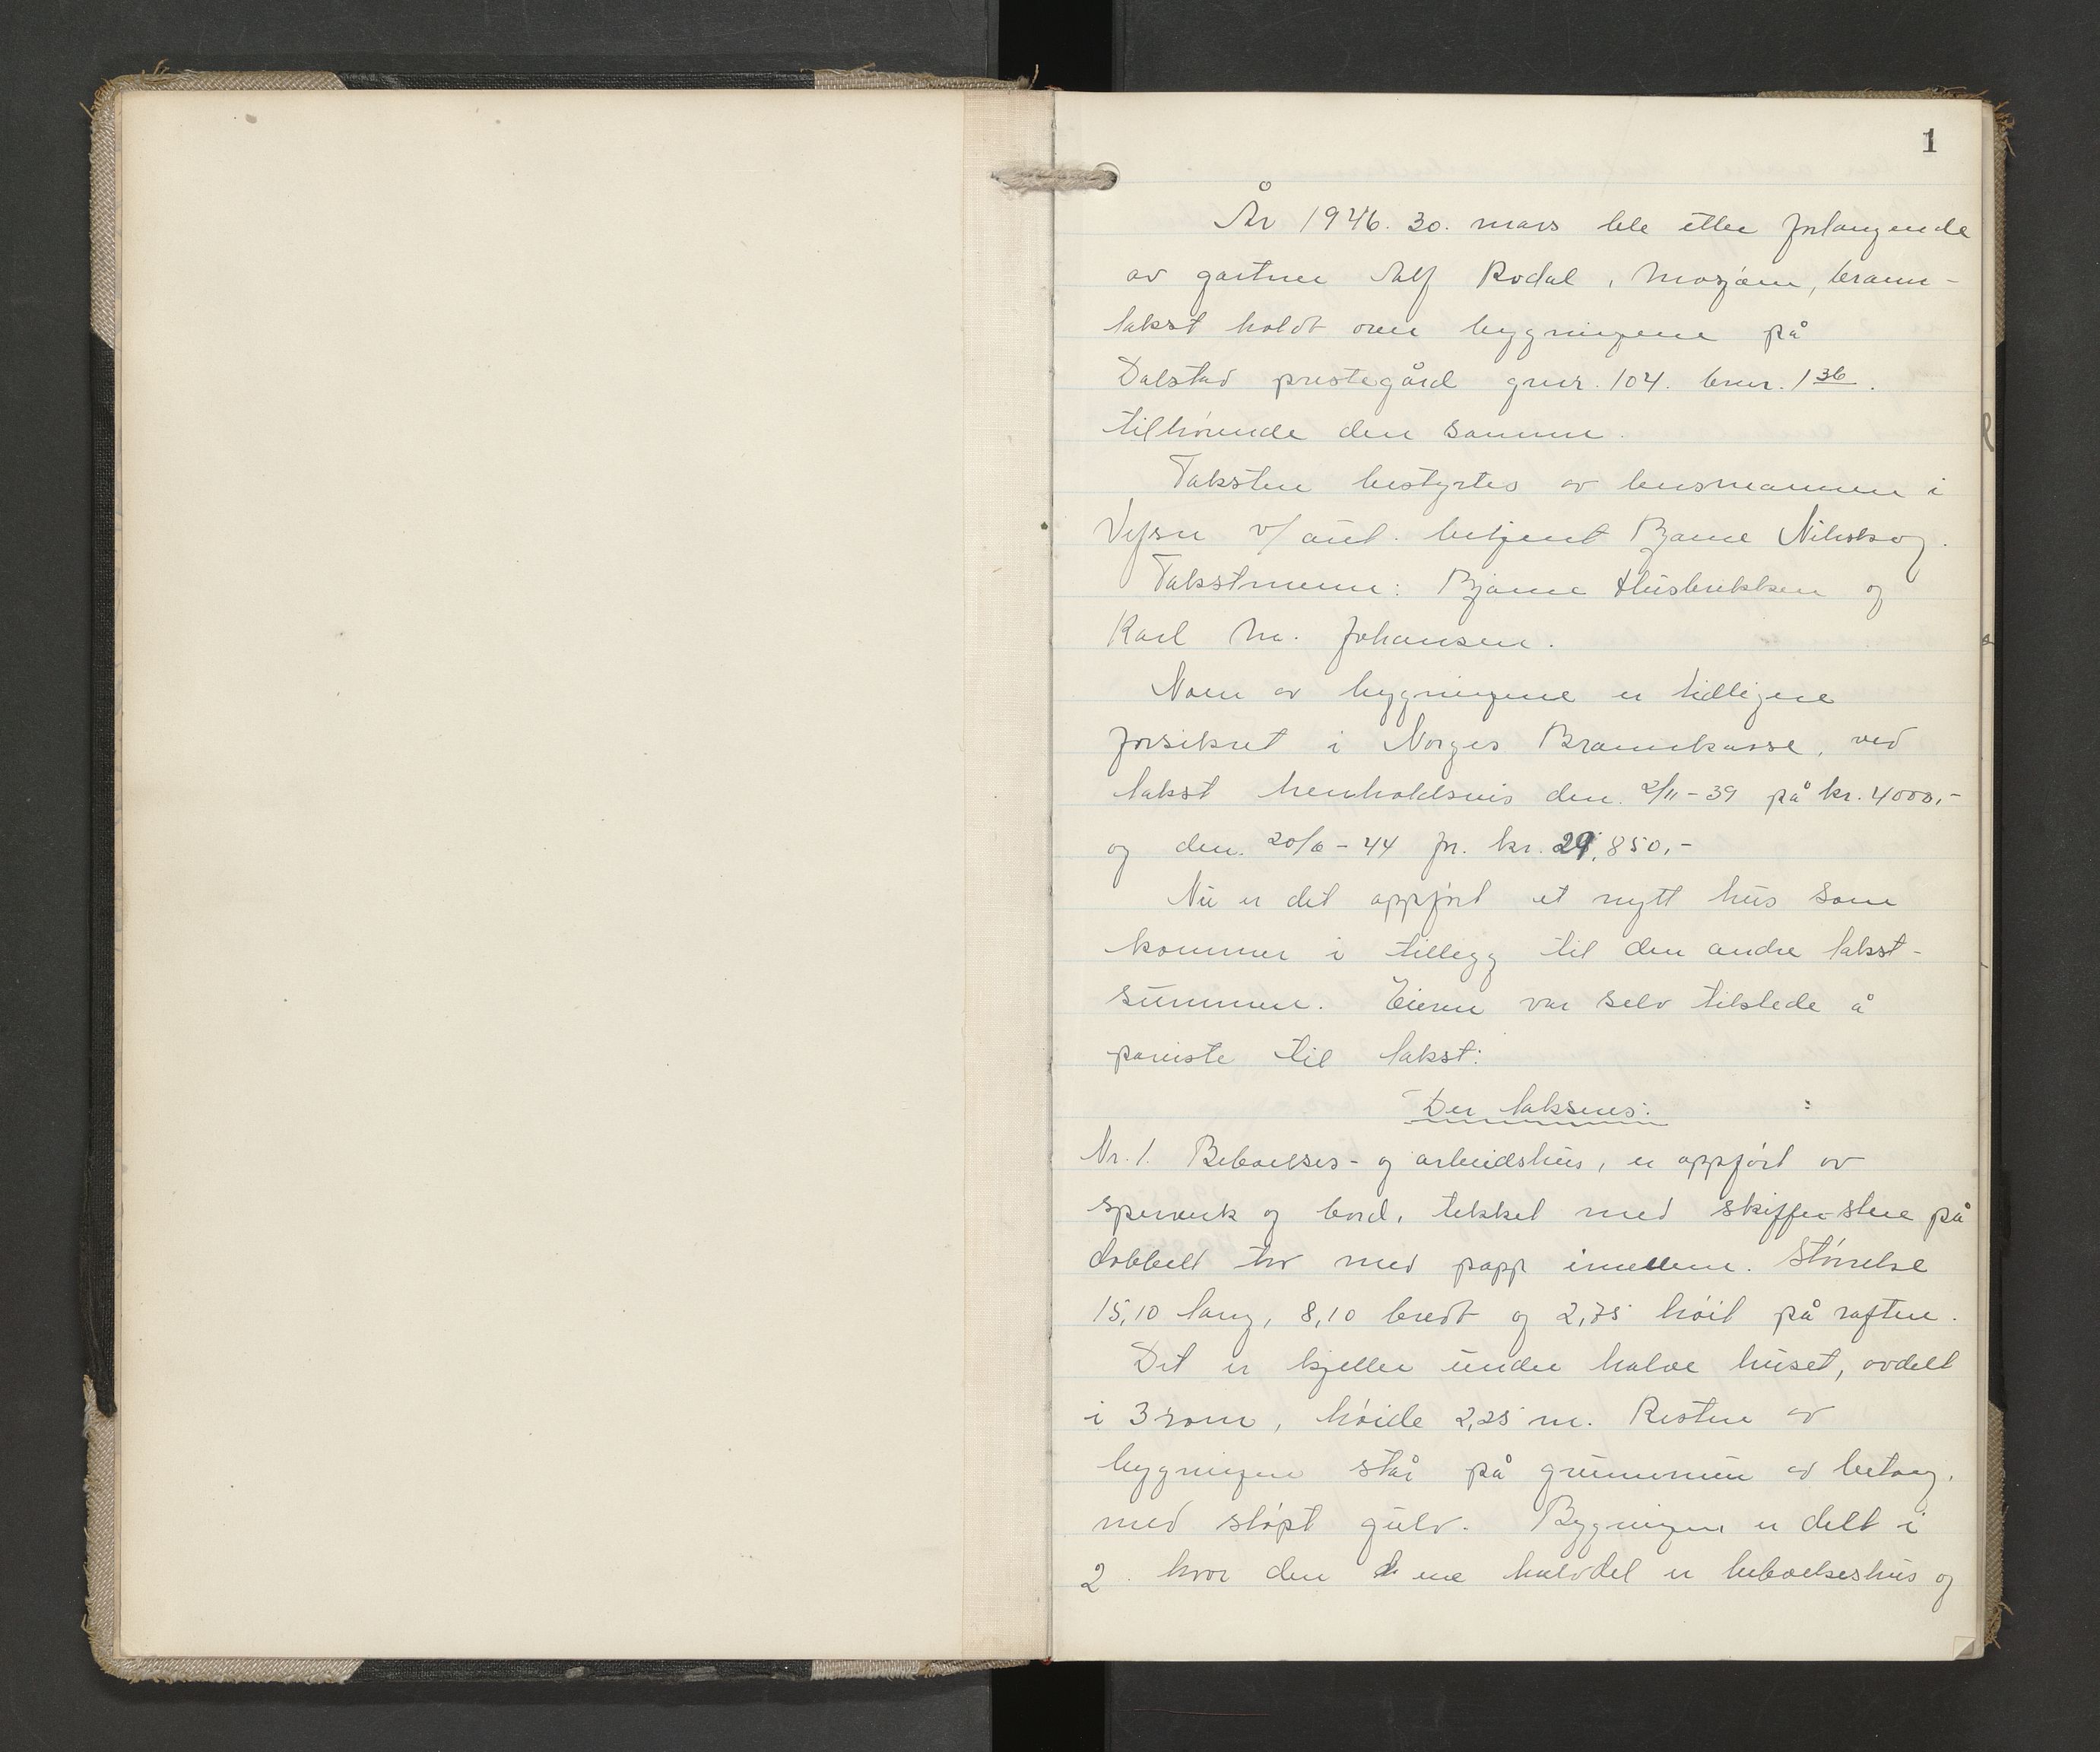 1
År 1946. 30. mars ble etter forlangende
av gartner Alf Rodal, Mosjøen, brann-
takst holdt over bygningene på
Dolstad prestegård gnr. 104. bnr. 1 36.
tilhørende den samme.
Taksten bestyrtes av lensmannen i
Vefsn v/ aut. betjent Bjarne Nilsskog.
Takstmenn: Bjarne Husbrekken og
Karl M. Johansen.
Noen av bygningene er tidligere
forsikret i Norges Brannkasse, ved
takst henholdsvis den 2/11-39 på kr. 4000,-
og den 20/6-44 for kr. 29,850,-
Nu er det oppført et nytt hus som
kommer i tillegg til den andre takst-
summen. Eieren var selv tilstede å
påviste til takst:
Der takseres:
Nr. 1. Beboelses- og arbeidshus, er oppført av
sperverk og bord, tekket med skiffersten på
dobbelt tro med papp imellem. Størrelse
15,10 lang, 8,10 bredt og 2,75 høit på raften.
Det er kjeller under halve huset, avdelt
i 3 rom, høide 2,25 m. Resten av
bygningen står på grunnmur av betong,
med støpt gulv. Bygningen er delt i
2. hvor den ene halvdel er beboelseshus og